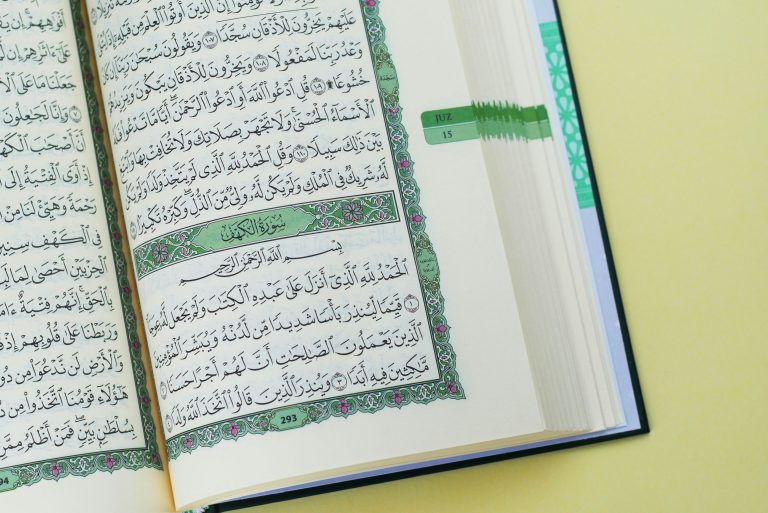 تُؤْمِنُوٓا۟ إِنَّ ٱلَّذِينَ أُوتُوا۟ ٱلْعِلْمَ مِن قَبْلِهِۦٓ
عَلَيْهِمْ يَخِرُّونَ لِلْأَذْقَانِ سُجَّدًا ١٠٧ وَيَقُولُونَ سُبْحَـٰنَ رَبِّنَآ إِن كَانَ
وَعْدُ رَبِّنَا لَمَفْعُولًا ١٠٨ وَيَخِرُّونَ لِلْأَذْقَانِ يَبْكُونَ وَيَزِيدُهُمْ
خُشُوعًا ۩ ١٠٩ قُلِ ٱدْعُوا۟ ٱللَّهَ أَوِ ٱدْعُوا۟ ٱلرَّحْمَـٰنَ أَيًّا مَّا تَدْعُوا۟ فَلَهُ
ٱلْأَسْمَآءُ ٱلْحُسْنَىٰ وَلَا تَجْهَرْ بِصَلَاتِكَ وَلَا تُخَافِتْ بِهَا وَٱبْتَغِ
بَيْنَ ذَٰلِكَ سَبِيلًا ١١٠ وَقُلِ ٱلْحَمْدُ لِلَّهِ ٱلَّذِى لَمْ يَتَّخِذْ وَلَدًا وَلَمْ يَكُن
لَّهُۥ شَرِيكٌ فِى ٱلْمُلْكِ وَلَمْ يَكُن لَّهُۥ وَلِىٌّ مِّنَ ٱلذُّلِّ وَكَبِّرْهُ تَكْبِيرًۢا
سُورَةُ ٱلْكَهْفِ
بِسْمِ ٱللَّهِ ٱلرَّحْمَـٰنِ ٱلرَّحِيمِ
ٱلْحَمْدُ لِلَّهِ ٱلَّذِىٓ أَنزَلَ عَلَىٰ عَبْدِهِ ٱلْكِتَـٰبَ وَلَمْ يَجْعَل لَّهُۥ عِوَجَا ١
قَيِّمًا لِّيُنذِرَ بَأْسًا شَدِيدًا مِّن لَّدُنْهُ وَيُبَشِّرَ ٱلْمُؤْمِنِينَ
ٱلَّذِينَ يَعْمَلُونَ ٱلصَّـٰلِحَـٰتِ أَنَّ لَهُمْ أَجْرًا حَسَنًا ٢
مَّـٰكِثِينَ فِيهِ أَبَدًا ٣ وَيُنذِرَ ٱلَّذِينَ قَالُوا۟ ٱتَّخَذَ ٱللَّهُ وَلَدًا ٤
293
JUZ
15
سجدة
عَلَىٰٓ ءَاثَـٰرِهِمْ إِن
جَعَلْنَا مَا عَلَى
وَإِنَّا لَجَـٰعِلُونَ
أَنَّ أَصْحَـٰبَ
إِذْ أَوَى ٱلْفِتْيَةُ إِلَى
رَحْمَةً وَهَيِّئْ لَنَا مِن
فِى ٱلْكَهْفِ سِنِينَ
ٱلْحِزْبَيْنِ أَحْصَىٰ لِمَا
بِٱلْحَقِّ إِنَّهُمْ فِتْيَةٌ
وَرَبَطْنَا عَلَىٰ قُلُوبِهِمْ إِذْ
وَٱلْأَرْضِ لَن نَّدْعُوَا۟ مِن
هَـٰٓؤُلَآءِ قَوْمُنَا ٱتَّخَذُوا۟ مِن
بِسُلْطَـٰنٍۭ بَيِّنٍ فَمَنْ أَظْلَمُ مِمَّنِ
94